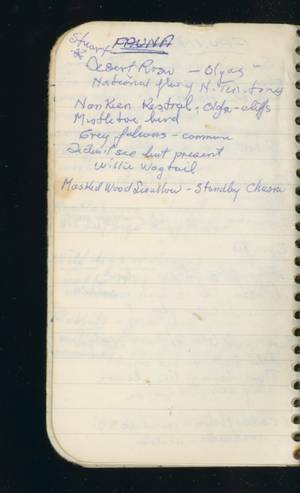 Stuart FAUNA
Desert Rose — Olgas
National flwr of N. Territory
Nankeen Kestrel. Olga cliffs
Mistletoe bird
Grey falcons - common
Didn't see but present
Willie Wagtail
Masked Wood Swallow - Standley Chasm